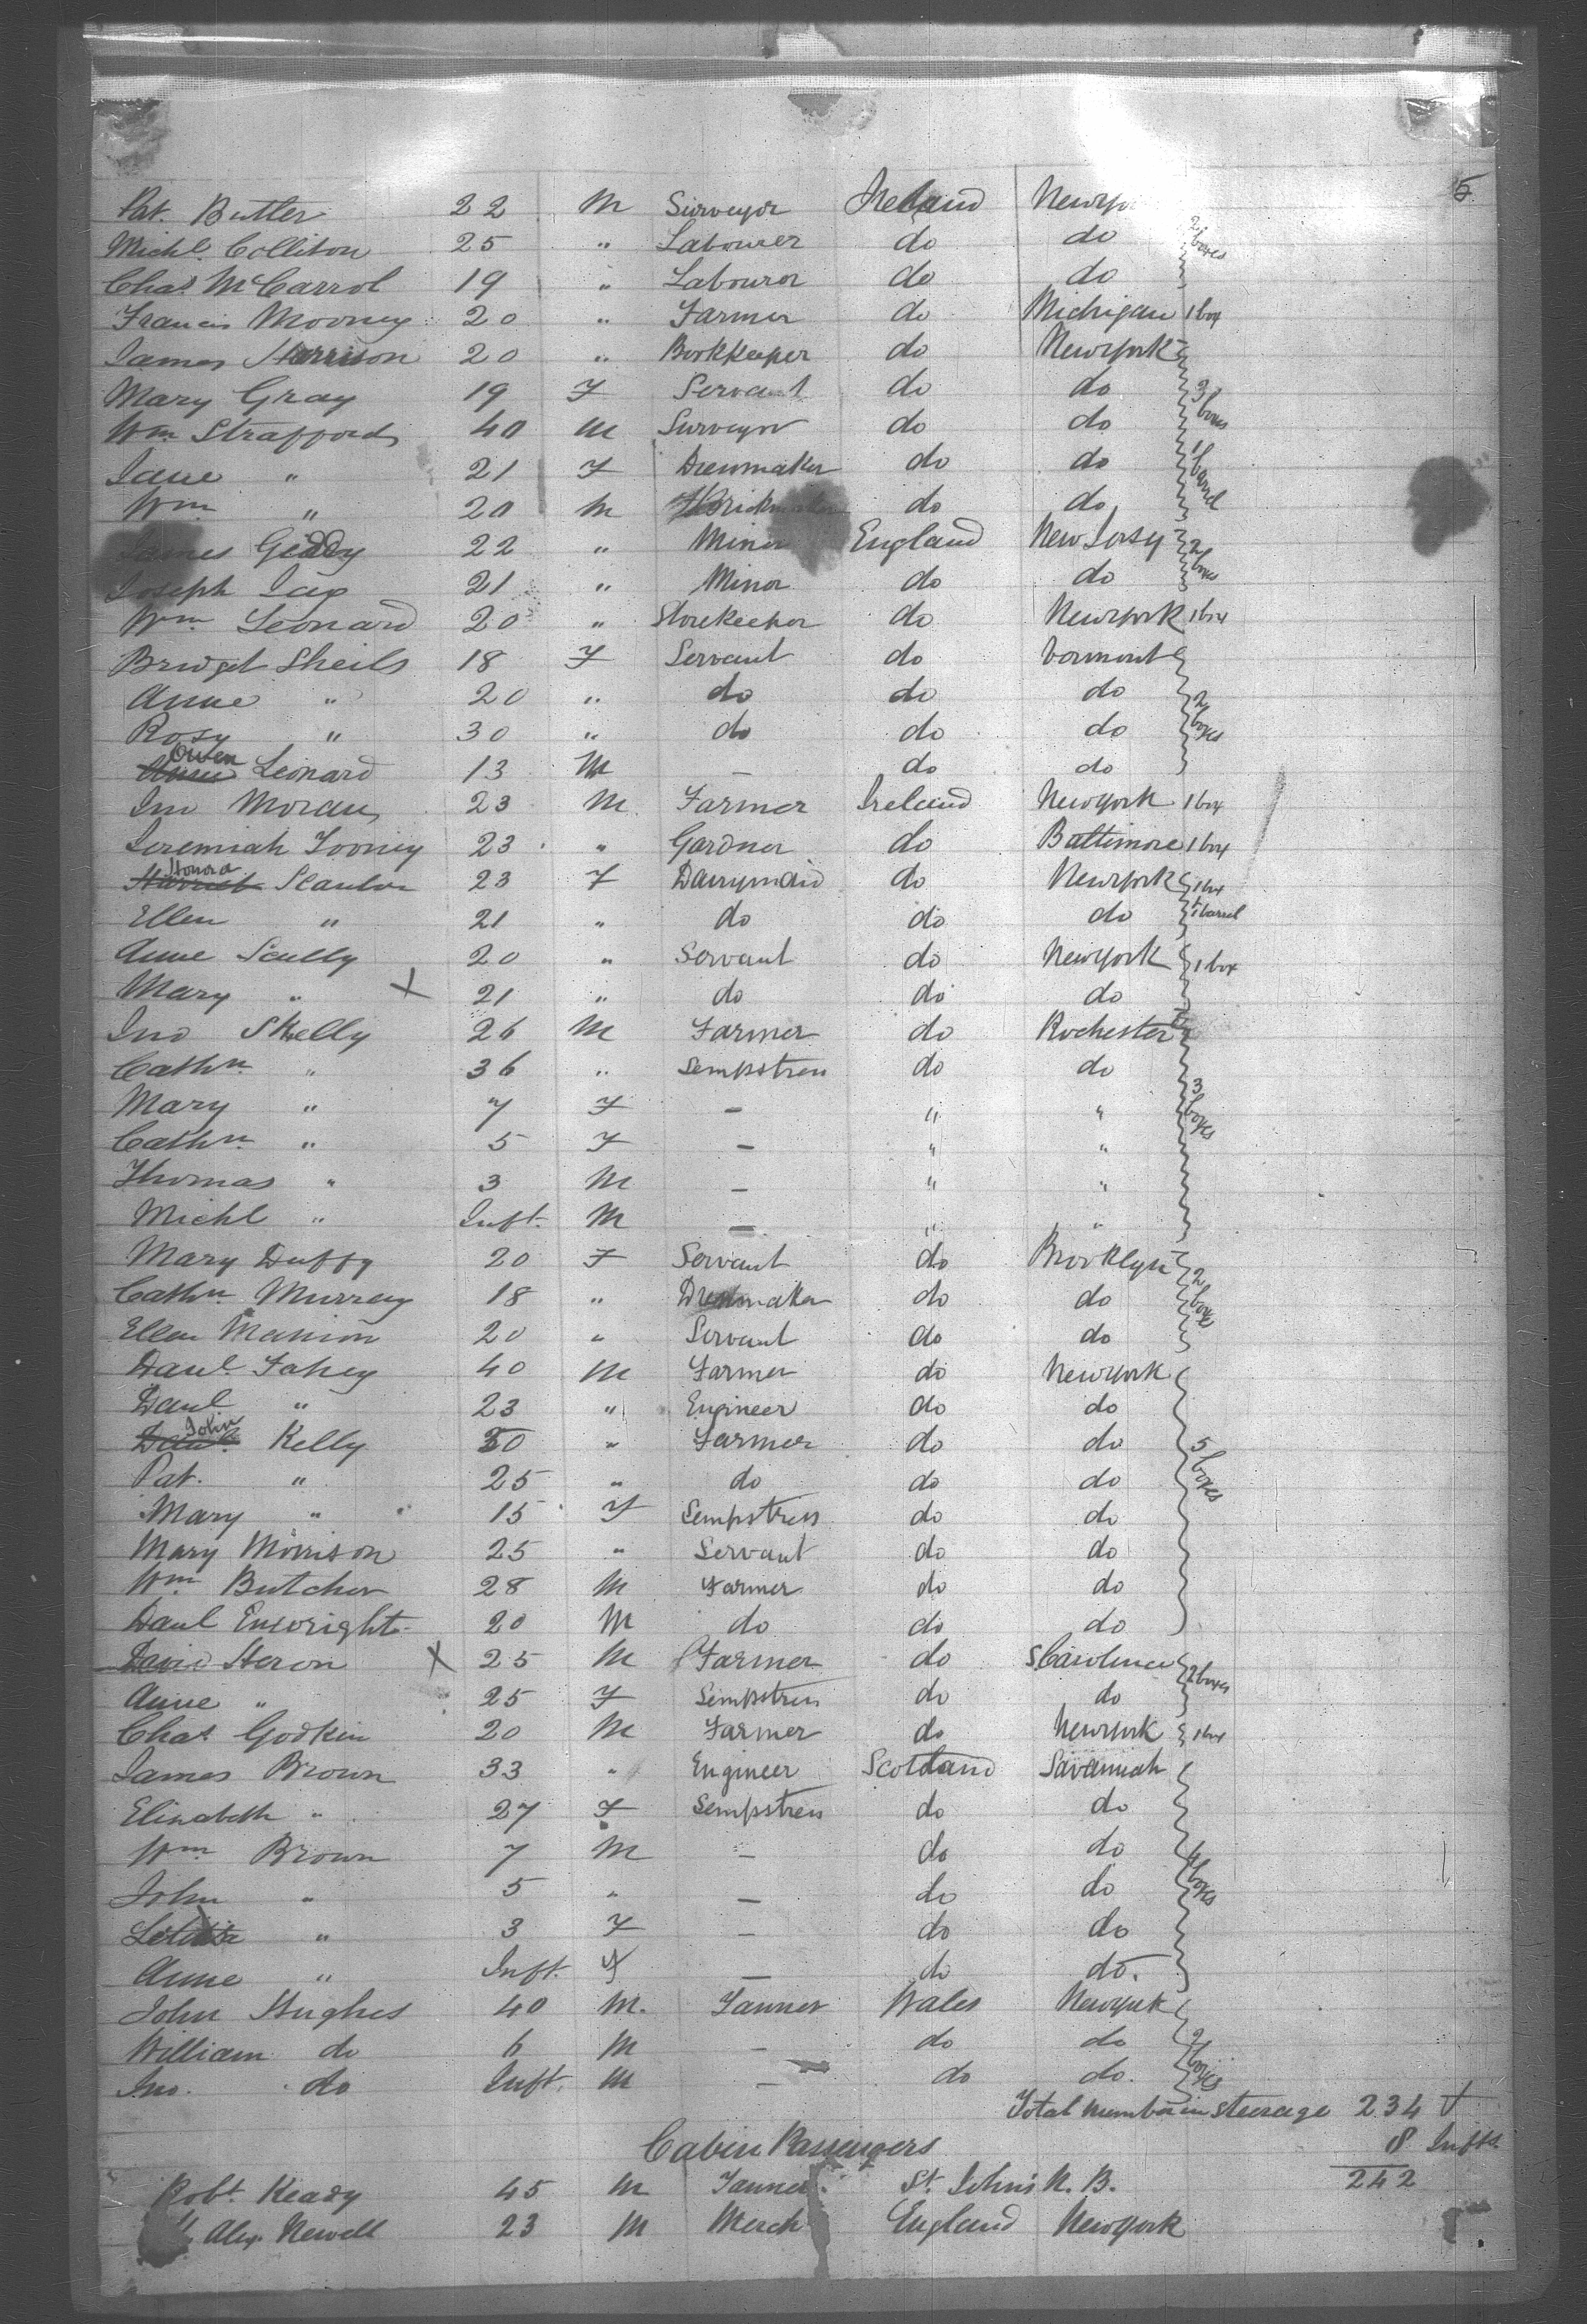 5
Pat. Butler 22 M Surveyor Ireland Newyo
Michl. Colliton 25 " Labourer do do 2 boxes
Chas. McCarrol 19 " Labouror do do
Francis Mooney 20 " Farmer do Michigan 1 box
James Harrison 20 " Bookkeeper do Newyork
Mary Gray 19 F Servant do do 3 boxes
Wm Strafford 40 M Surveyor do do
Jane " 21 F Dressmaker do do 1 barrel
Wm " 20 M do do
James Geddy 22 " Minor England New Jersy 2 boxes
Joseph 21 " Minor do do
Wm Leonard 20 " Storekeeper do Newyork 1 box
Bridget Sheils 18 F Servant do Vormont
Anne " 20 " do do do 2 boxes
Rosy " 30 " do do do
Owen Leonard 13 M — do do
Jno Moran 23 M Farmer Ireland Newyork 1 box
Jeremiah Tooney 23 " Gardner do Baltimore 1 box
Honora Scanlon 23 F Dairymaid do Newyork 1 box
Ellen " 21 " do do do 1 barrel
Anne Scully 20 " Servant do Newyork 1 box
Mary " X 21 " do do do
Jno Skelly 26 M Farmer do Rochester
Cathn " 36 " Sempstress do do 3 boxes
Mary " 7 F — " "
Cathn " 5 F — " "
Thomas " 3 M — " "
Michl " Inft. M — " "
Mary Duffy 20 F Servant do Brooklyn 2 boxes
Cathn Murray 18 " Dressmaker do do
Ellen Manion 20 " Servant do do
Danl. Fahey 40 M Farmer do Newyork
Danl " 23 " Engineer do do
John Kelly 30 " Farmer do do 5 boxes
Pat. " 25 " do do do
Mary " 15 F Sempstress do do
Mary Morrison 25 " Servant do do
Wm. Butcher 28 M Farmer do do
Danl Enwright 20 M do do do
David Heron X 25 M Farmer do S Carolina 2 boxes
Anne " 25 F Sempstress do do
Chas Godkin 20 M Farmer do Newyork 1 box
James Brown 33 " Engineer Scotland Savannah
Elizabeth " 27 F Sempstress do do
Wm Brown 7 M — do do 4 boxes
John " 5 " — do do
Letitia " 3 F — do do
Anne " Inft. F — do do.
John Hughes 40 M. Tanner Wales Newyork
William do 6 M — do do 2 boxes
Jno. do Inft. M — do do.
Total number in steerage 234
8 Infts.
242
Cabin Passengers
Robt. Keady 45 M Tanner St. John's N. B.
Alex. Newell 23 M Merch England Newyork